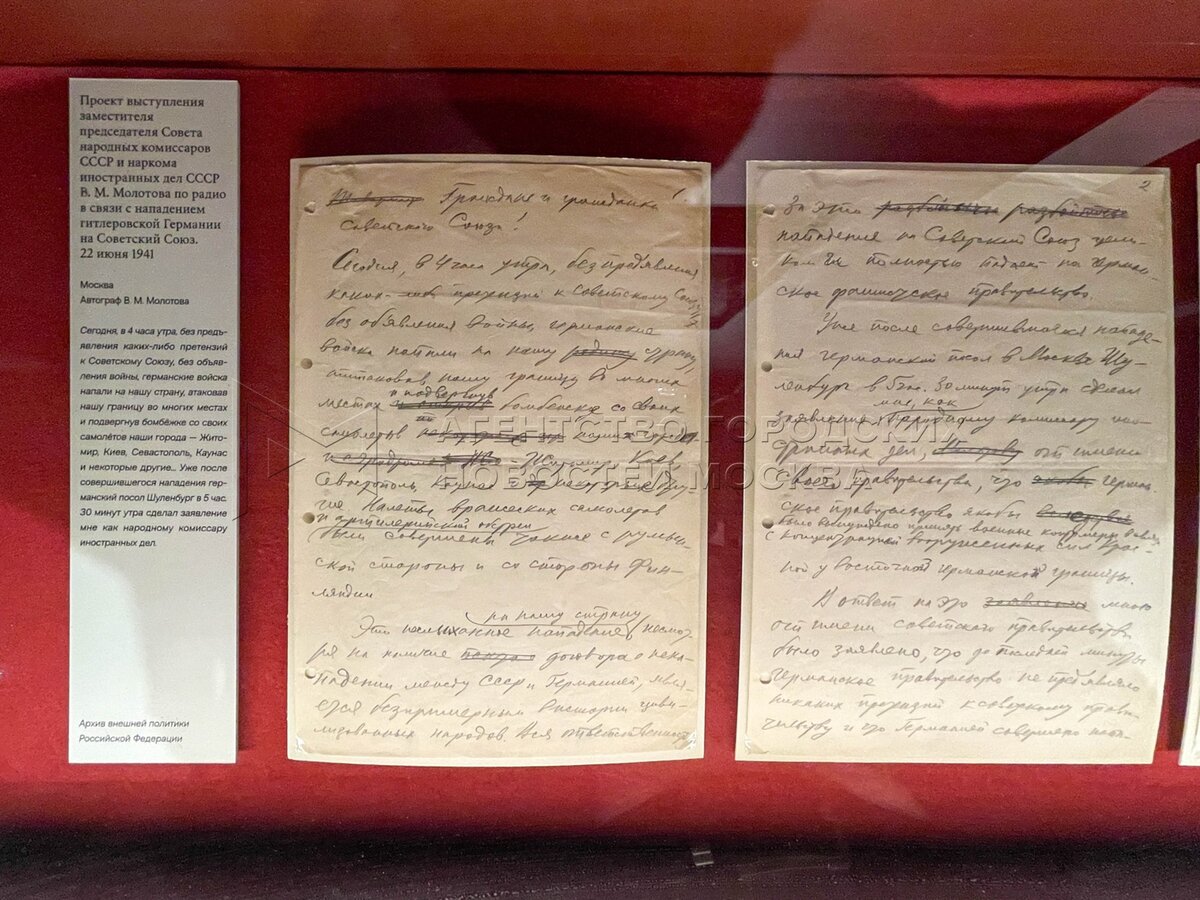 Проект выступления
заместителя
председателя Совета
народных комиссаров
СССР и наркома
иностранных дел СССР
В. М. Молотова по радио
в связи с нападением
гитлеровской Германии
на Советский Союз.
22 июня 1941
Москва
Автограф В. М. Молотова
Сегодня, в 4 часа утра, без предъ-
явления каких-либо претензий
к Советскому Союзу, без объяв-
ления войны, германские войска
напали на нашу страну, атаковав
нашу границу во многих местах
и подвергнув бомбёжке со своих
самолётов наши города — Жито-
мир, Киев, Севастополь, Каунас
и некоторые другие... Уже после
совершившегося нападения гер-
манский посол Шуленбург в 5 час.
30 минут утра сделал заявление
мне как народному комиссару
иностранных дел.
Архив внешней политики
Российской Федерации
Граждане и гражданки
Советского Союза!
Сегодня, в 4 часа утра, без предъявления
каких- претензий к Советскому Союзу
без объявления войны, германские
войска напали на нашу страну,
атаковав нашу границу во многих
и подвергнув
местах бомбежке со своих
самолетов наши города
Житомир, Киев
Севастополь, Каунас
Налеты вражеских самолетов
и артиллерийский обстрел
были совершены также с румын-
ской стороны и со стороны Фин-
ляндии
на нашу страну
Это неслыханное нападение, несмот-
ря на наличие договора о нена-
падении между СССР и Германией, явля-
ется беспримерным в истории циви-
лизованных народов. Вся ответственность
2
За это разбойничье
нападение на Советский Союз цели-
ком и полностью падает на герман-
ское фашистское правительство.
Уже после совершившегося нападе-
ния германский посол в Москве Шу-
ленбург в 5 час. 30 минут утра сделал
мне, как
заявление Народному комиссару ино-
странных дел, от имени
своего правительства, что герман-
ское правительство якобы
было вынуждено принять военные
с концентрацией вооруженных сил Крас-
ной у восточной германской границы.
В ответ на это мною
от имени советского правительства
было заявлено, что до последней минуты
германское правительство не предъявляло
никаких претензий к советскому прави-
тельству и что Германией совершено напа-
АГЕНТСТВО ГОРОДСКИХ
НОВОСТЕЙ МОСКВА